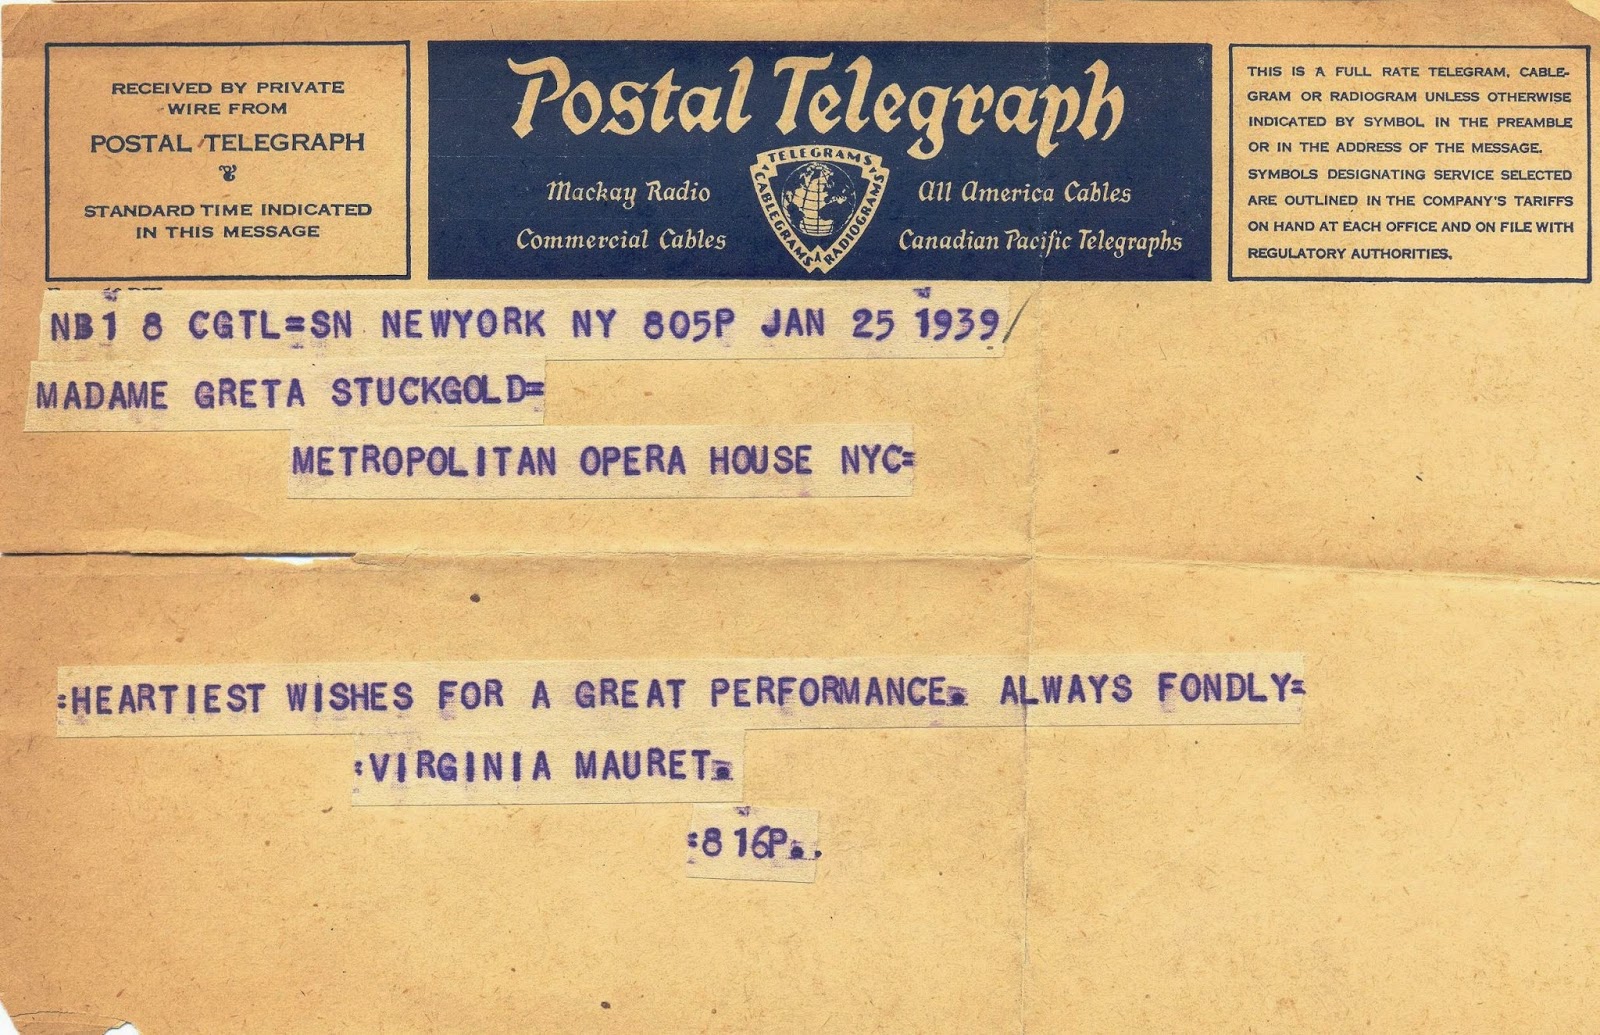 RECEIVED BY PRIVATE
WIRE FROM
POSTAL TELEGRAPH
STANDARD TIME INDICATED
IN THIS MESSAGE
Postal Telegraph
Mackay Radio
Commercial Cables
TELEGRAMS
CABLEGRAMS
RADIOGRAMS
All America Cables
Canadian Pacific Telegraphs
THIS IS A FULL RATE TELEGRAM, CABLE-
GRAM OR RADIOGRAM UNLESS OTHERWISE
INDICATED BY SYMBOL IN THE PREAMBLE
OR IN THE ADDRESS OF THE MESSAGE.
SYMBOLS DESIGNATING SERVICE SELECTED
ARE OUTLINED IN THE COMPANY'S TARIFFS
ON HAND AT EACH OFFICE AND ON FILE WITH
REGULATORY AUTHORITIES.
NB1 8 CGTL=SN NEWYORK NY 805P JAN 25 1939/
MADAME GRETA STUCKGOLD=
METROPOLITAN OPERA HOUSE NYC=
:HEARTIEST WISHES FOR A GREAT PERFORMANCE. ALWAYS FONDLY=
:VIRGINIA MAURET.
:816P..